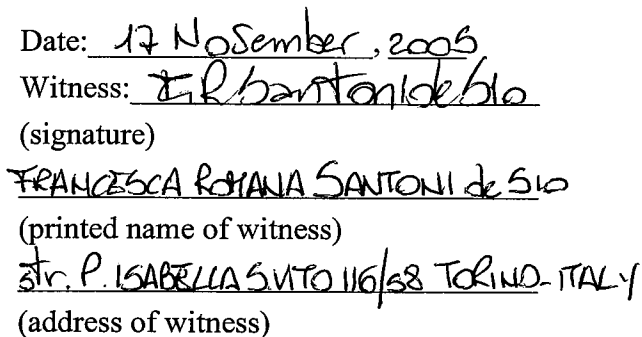 Date: 17 November, 2005
Witness: F.R. Santoni de Sio
(signature)
FRANCESCA ROMANA SANTONI de SIO
(printed name of witness)
str. P. ISABELLA S.VITO 116/58 TORINO - ITALY
(address of witness)